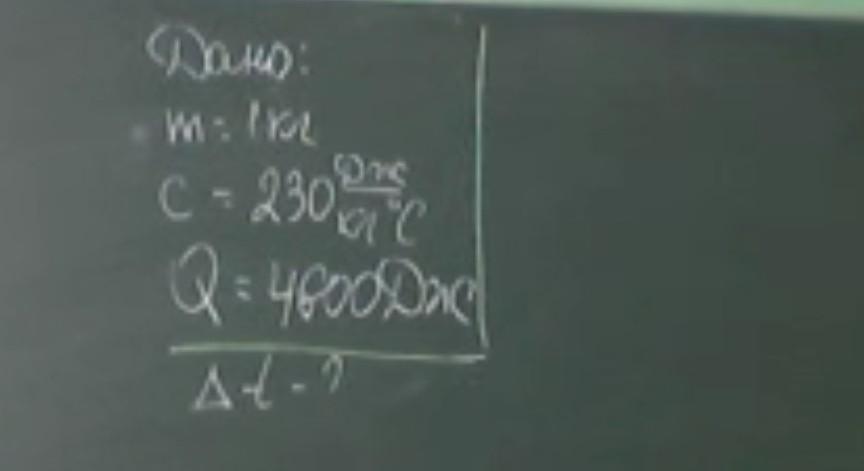 Дано:
m = 1 кг
c = 230 Дж/кг°C
Q = 4600 Дж
Δt - ?